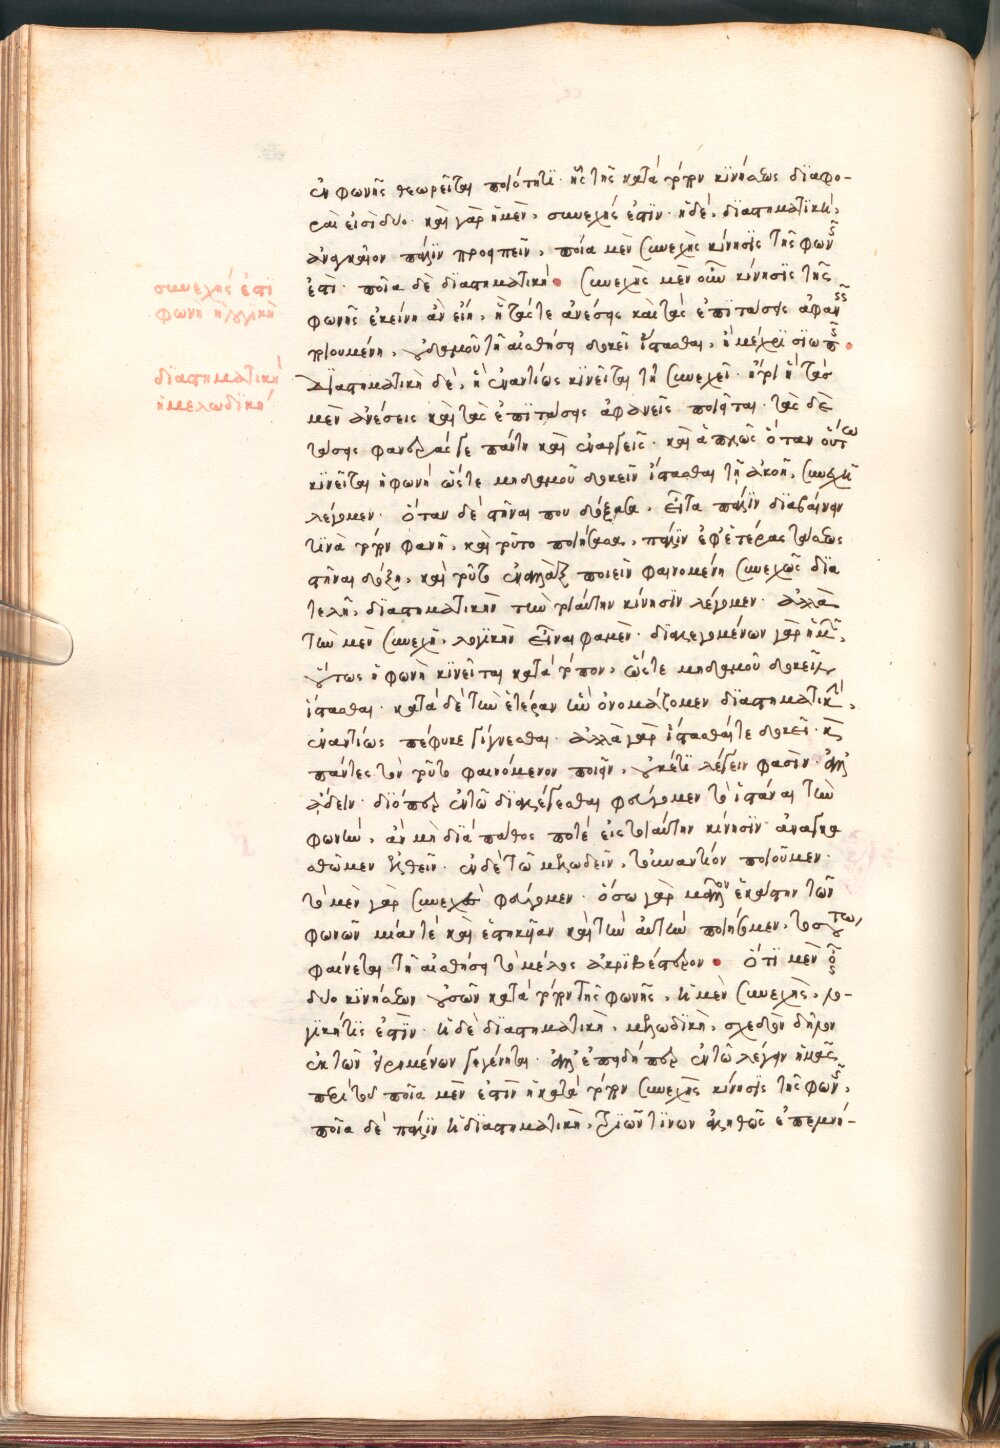 ἐν φωνῆς θεωρεῖται ποιότητι· ἧς τῆς κατὰ τόπον κινήσεως διαφο-
ραὶ εἰσὶ δύο· καὶ γὰρ ἡ μὲν, συνεχής ἐστιν· ἡ δὲ, διαστηματική,
ἀναγκαῖον πάλιν προσειπεῖν, ποία μὲν συνεχὴς κίνησις τῆς φωνῆς
συνεχής ἐστι
φωνὴ ἡ λογικὴ
ἐστι· ποία δὲ διαστηματική. συνεχὴς μὲν οὖν κίνησις τῆς
φωνῆς ἐκείνη ἂν εἴη, ἡ τάς τε ἀνέσεις καὶ τὰς ἐπιτάσεις ἀφανῶς
ποιουμένη, οὐδαμοῦ τῇ αἰσθήσει δοκεῖ ἵστασθαι, ἢ μέχρι σιωπῆς.
διαστηματικὴ
ἡ μελωδικὴ
διαστηματικὴ δὲ, ἡ ἐναντίως κινεῖται τῇ συνεχεῖ· ἤτοι ἡ τὰς
μὲν ἀνέσεις καὶ τὰς ἐπιτάσεις ἀφανεῖς ποιῆται· τὰς δὲ
τάσεις φανεράς γε πάντη καὶ ἐναργεῖς· καὶ ἁπλῶς ὅταν οὕτω
κινεῖται ἡ φωνὴ ὥστε μηδαμοῦ δοκεῖν ἵστασθαι τῇ ἀκοῇ, συνεχῆ
λέγομεν· ὅταν δὲ στῆναι που δόξασα, εἶτα πάλιν διαβαίνειν
τινὰ τόπον φανῇ, καὶ τοῦτο ποιήσασα, πάλιν ἐφ' ἑτέρας τάσεως
στῆναι δόξῃ, καὶ τοῦτο ἐναλλὰξ ποιεῖν φαινομένη συνεχῶς δια
τελῇ, διαστηματικὴν τὴν τοιαύτην κίνησιν λέγομεν· ἀλλὰ
τὴν μὲν συνεχῆ, λογικὴν εἶναι φαμὲν· διαλεγομένων γὰρ ἡμῶν,
οὕτως ἡ φωνὴ κινεῖται κατὰ τόπον, ὥστε μηδαμοῦ δοκεῖν
ἵστασθαι· κατὰ δὲ τὴν ἑτέραν ἣν ὀνομάζομεν διαστηματικὴν,
ἐναντίως πέφυκε γίγνεσθαι· ἀλλὰ γὰρ ἵστασθαί τε δοκεῖ· καὶ
πάντες τὸν τοῦτο φαινόμενον ποιεῖν, οὐκέτι λέγειν φασὶν· ἀλλ'
ᾄδειν· διόπερ ἐν τῷ διαλέγεσθαι φεύγομεν τὸ ἱστάναι τὴν
φωνὴν, ἂν μὴ διὰ πάθος ποτὲ εἰς τοιαύτην κίνησιν ἀναγκα
σθῶμεν ἐλθεῖν· ἐν δὲ τῷ μελωδεῖν, τοὐναντίον ποιοῦμεν·
τὸ μὲν γὰρ συνεχὲς φεύγομεν· ὅσω γὰρ μᾶλλον ἑκάστην τῶν
φωνῶν μίαν τὲ καὶ ἑστηκῖαν καὶ τὴν αὐτὴν ποιήσομεν, τοσούτω,
φαίνεται τῇ αἰσθήσει τὸ μέλος ἀκριβέστερον. ὅτι μὲν οὖν
δύο κινήσεων οὐσῶν κατὰ τόπον τῆς φωνῆς, ἡ μὲν συνεχὴς, λο-
γική τις ἐστὶν· ἡ δὲ διαστηματικὴ, μελωδικὴ, σχεδὸν δῆλον
ἐκ τῶν εἰρημένων γεγένηται· ἀλλ' ἐπειδήπερ ἐν τῷ λέγειν ἡμᾶς
περὶ τοῦ ποία μὲν ἐστὶν ἡ κατὰ τόπον συνεχὴς κίνησις τῆς φωνῆς,
ποία δὲ πάλιν ἡ διαστηματικὴ, τινῶν ἀληθῶς ἐπεμνή-